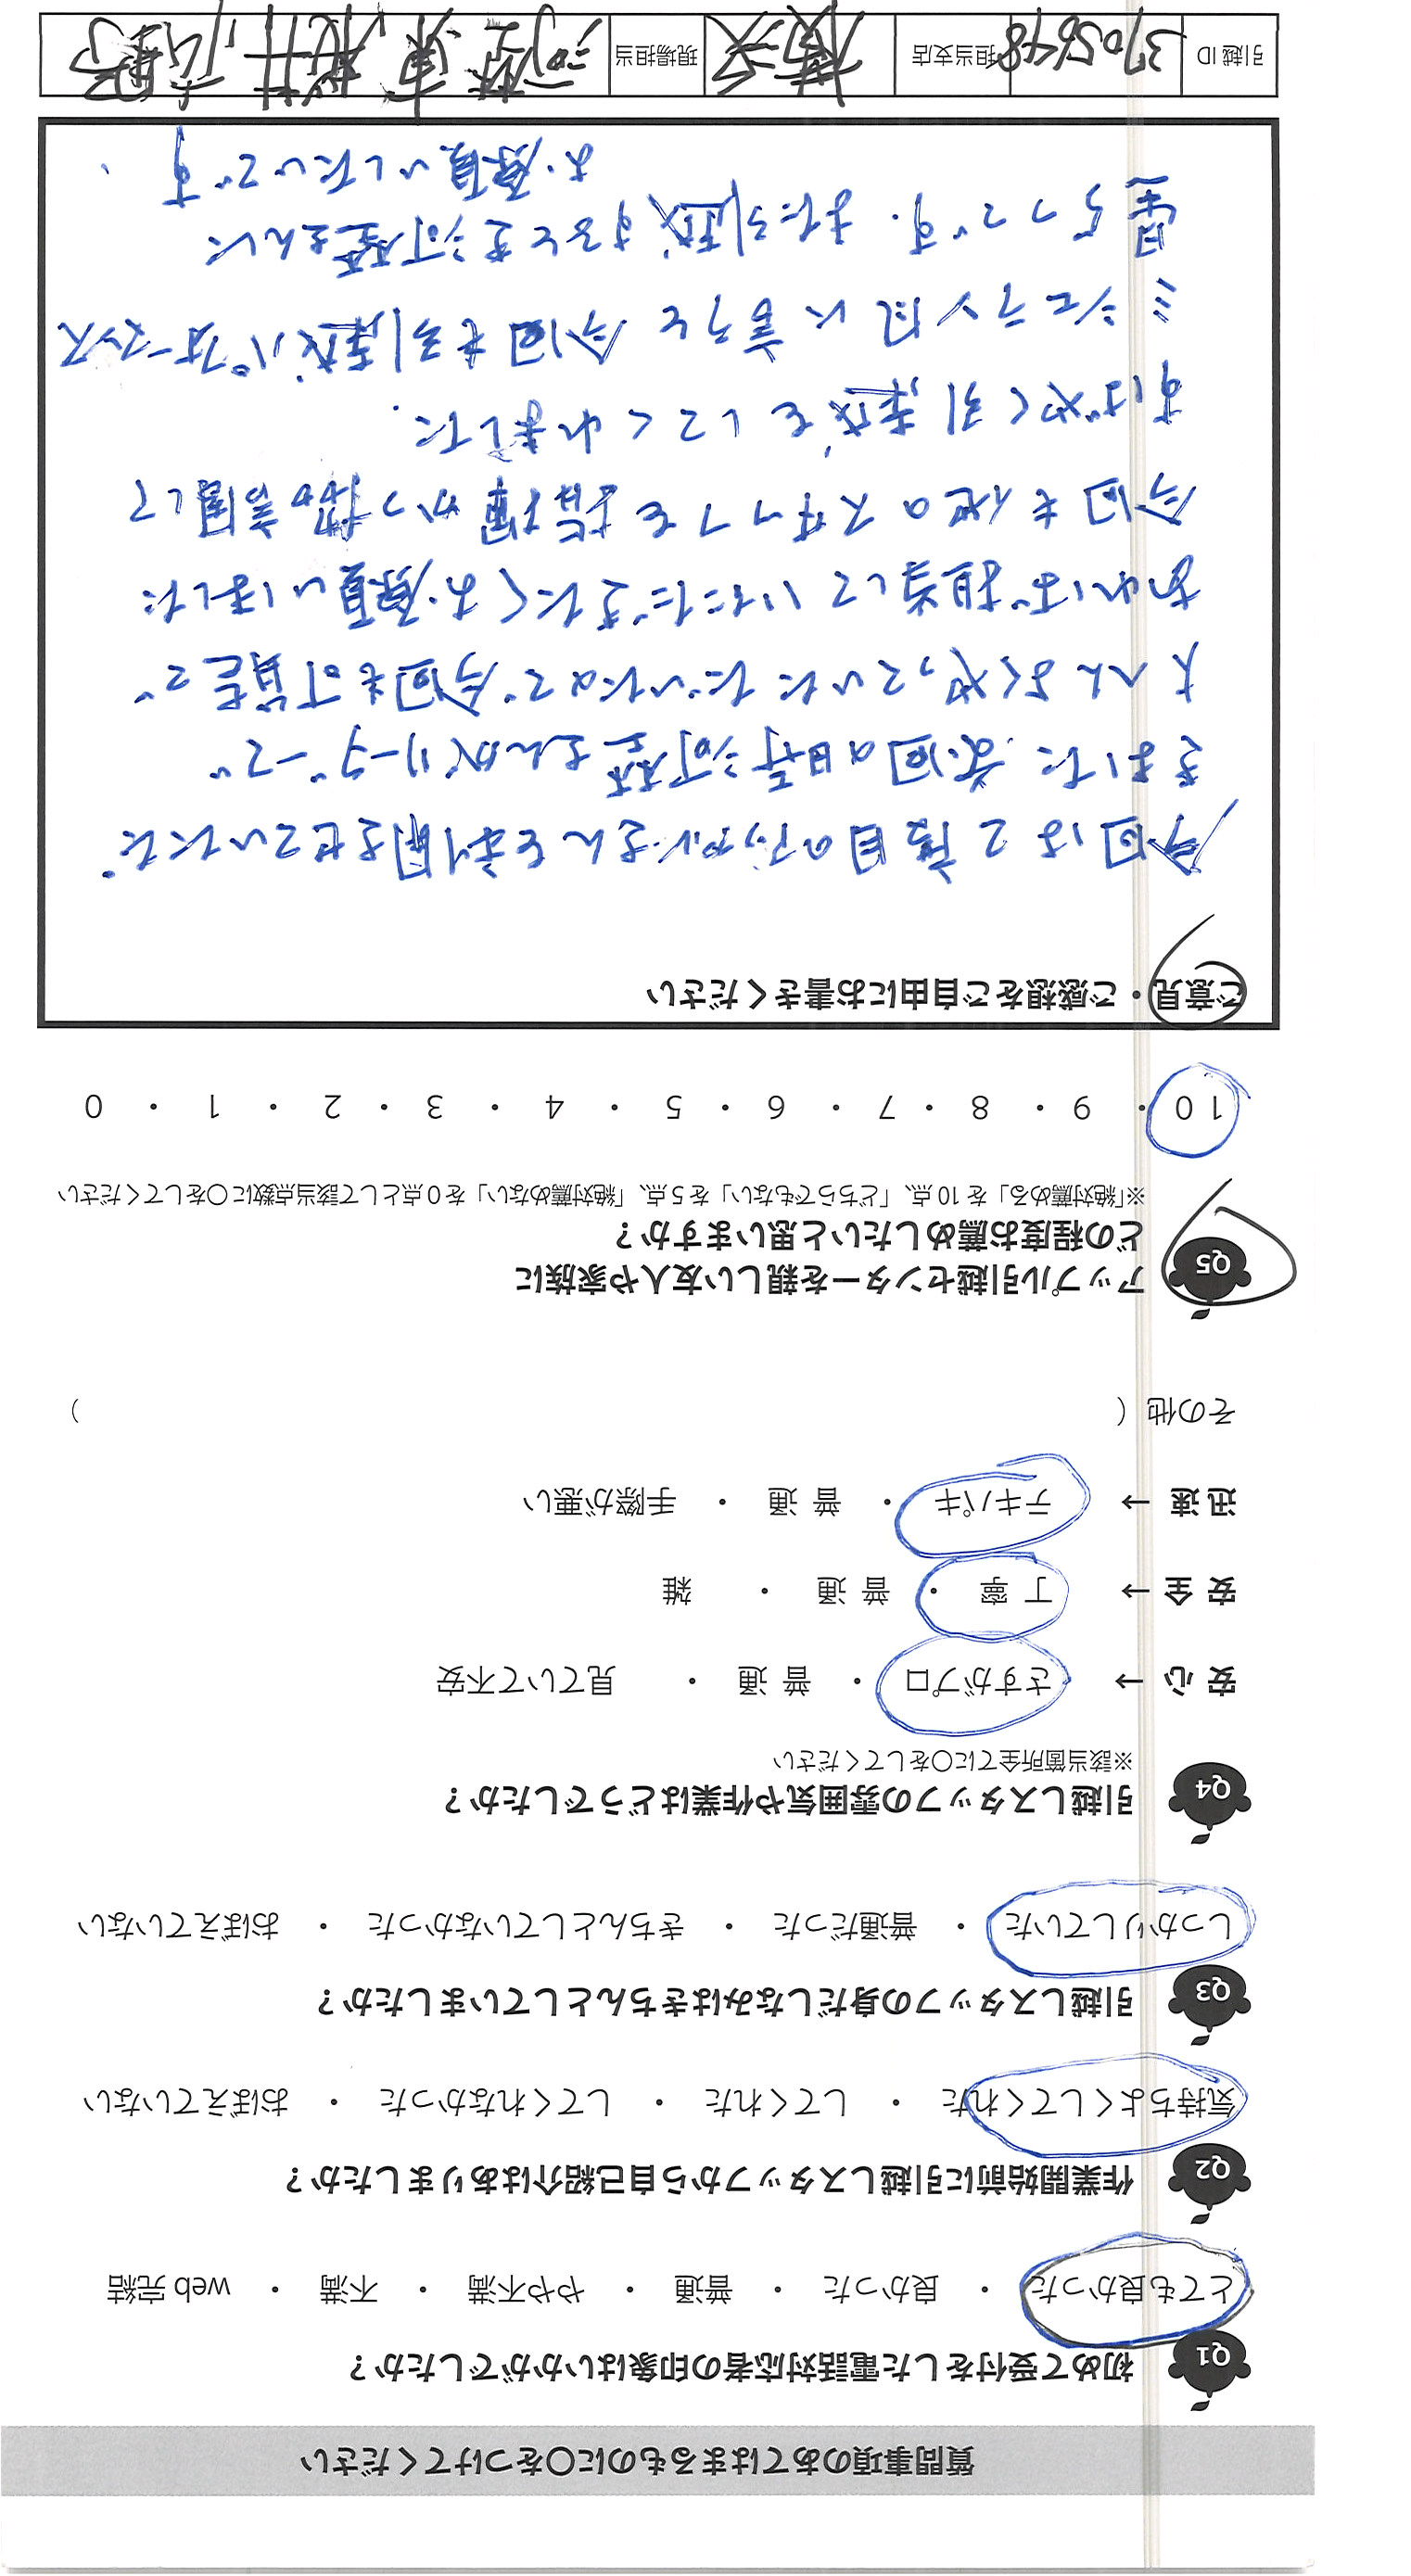 質問事項のあてはまるものに○をつけてください
Q1 初めて受付をした電話対応者の印象はいかがでしたか？
とても良かった ・ 良かった ・ 普通 ・ やや不満 ・ 不満 ・ web 完結
Q2 作業開始前に引越しスタッフから自己紹介はありましたか？
気持ちよくしてくれた ・ してくれた ・ してくれなかった ・ おぼえていない
Q3 引越しスタッフの身だしなみはきちんとしていましたか？
しっかりしていた ・ 普通だった ・ きちんとしていなかった ・ おぼえていない
Q4 引越しスタッフの雰囲気や作業はどうでしたか？
※該当箇所全てに○をしてください
安 心 → さすがプロ ・ 普 通 ・ 見ていて不安
安 全 → 丁 寧 ・ 普 通 ・ 雑
迅 速 → テキパキ ・ 普 通 ・ 手際が悪い
その他（ ）
Q5 アップル引越センターを親しい友人や家族に
どの程度お薦めしたいと思いますか？
※「絶対薦める」を 10 点、「どちらでもない」を 5 点、「絶対薦めない」を 0 点として該当点数に○をしてください
10 ・ 9 ・ 8 ・ 7 ・ 6 ・ 5 ・ 4 ・ 3 ・ 2 ・ 1 ・ 0
ご意見・ご感想をご自由にお書きください
今回は2度目のアップルさんを利用させていただ
きました. 前回の時 河埜さんがリーダーで
大へんよくやっていただいたので今回も可能で
あれば担当していただきたくお願いしました
今回も他のスタッフを指揮かつ協調して
すばやく引越をしてくれました.
ミシュラン風に言うと今回も引越パフォーマンス
星5つです. また引越するとき河埜さんに
お願いしたいです.
引越 ID 3705648 担当支店 横浜 現場担当 河埜